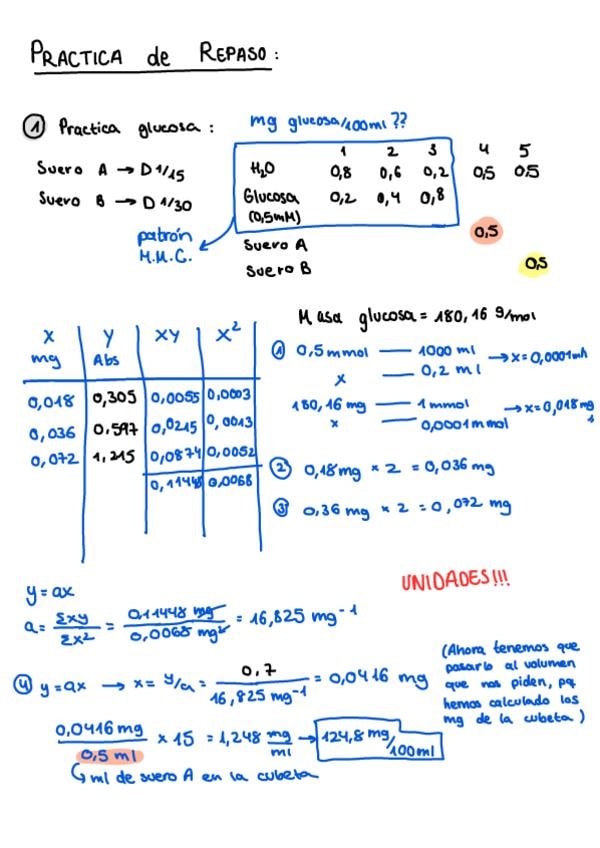 PRACTICA de REPASO:
① Practica glucosa: mg glucosa/100ml ??
Suero A → D 1/15
Suero B → D 1/30
1 2 3 4 5
H₂O 0,8 0,6 0,2 0,5 0.5
Glucosa 0,2 0,4 0,8
(0,5mM)
Suero A 0,5
Suero B 0,5
patrón
M.M.C.
Masa glucosa = 180,16 g/mol
X Y XY X²
mg Abs
0,018 0,305 0,0055 0,0003
0,036 0.597 0,0215 0,0013
0,072 1,215 0,0874 0,0052
0,11448 0,0068
① 0,5mmol — 1000 ml → x=0,0001mh
x — 0,2 ml
180,16 mg — 1 mmol → x=0,018mg
x — 0,0001mmol
② 0,18mg × 2 = 0,036 mg
③ 0,36 mg × 2 = 0,072 mg
UNIDADES!!!
y = ax
a = Σxy/Σx² = 0.11448 mg/0,0068 mg² = 16,825 mg⁻¹
④ y=ax → x= y/a = 0,7/16,825 mg⁻¹ = 0,0416 mg
(Ahora tenemos que
pasarlo al volumen
que nos piden, pq
hemos calculado los
mg de la cubeta)
0,0416 mg/0,5 ml × 15 = 1,248 mg/ml → 124,8 mg/100ml
ml de suero A en la cubeta